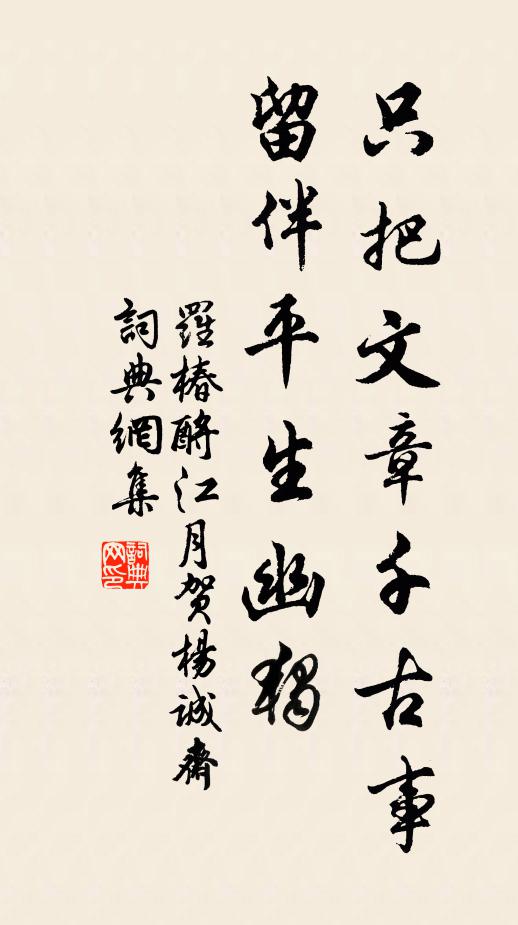 只把文章千古事
留伴平生幽獨
羅椿酹江月賀楊誠齋
詞典網集
詞典网印